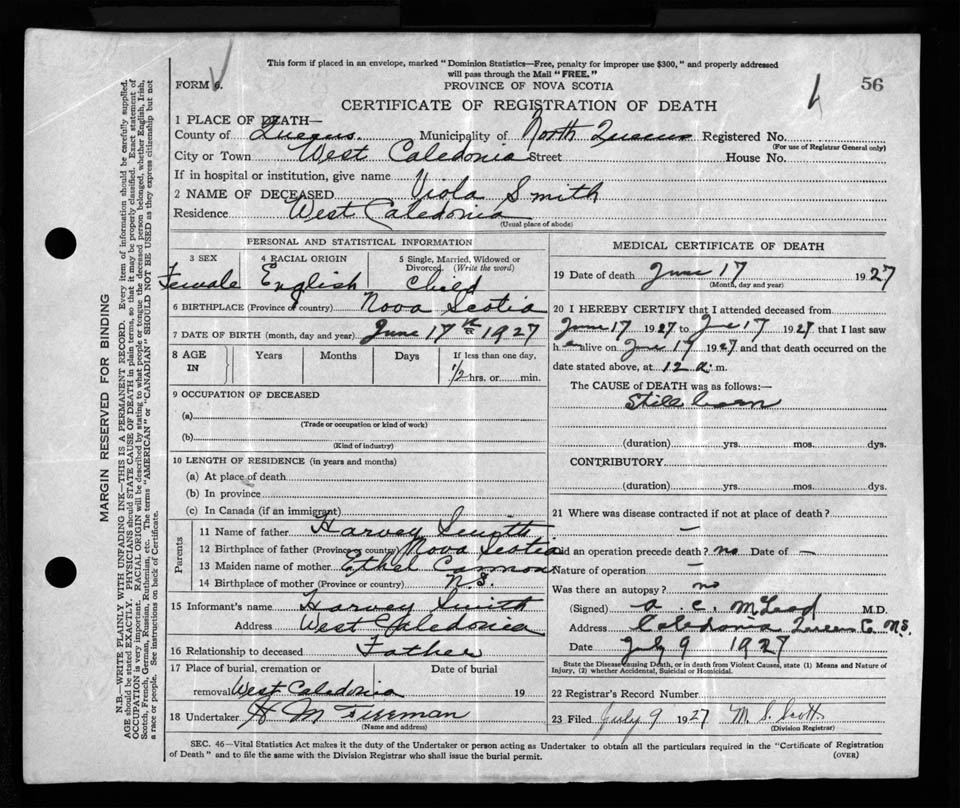 This form if placed in an envelope, marked "Dominion Statistics—Free, penalty for improper use $300," and properly addressed
will pass through the Mail "FREE."
FORM 6.
PROVINCE OF NOVA SCOTIA
56
CERTIFICATE OF REGISTRATION OF DEATH
1 PLACE OF DEATH—
County of Queens. Municipality of North Queens Registered No.
(For use of Registrar General only)
City or Town West Caledonia Street House No.
If in hospital or institution, give name
2 NAME OF DECEASED Viola Smith
Residence West Caledonia
(Usual place of abode)
PERSONAL AND STATISTICAL INFORMATION
3 SEX 4 RACIAL ORIGIN 5 Single, Married, Widowed or
Divorced. (Write the word)
Female English Child
6 BIRTHPLACE (Province or country) Nova Scotia
7 DATE OF BIRTH (month, day and year) June 17th 1927
8 AGE IN Years Months Days If less than one day,
1/2 hrs. or min.
9 OCCUPATION OF DECEASED
(a)
(Trade or occupation or kind of work)
(b)
(Kind of industry)
10 LENGTH OF RESIDENCE (in years and months)
(a) At place of death
(b) In province
(c) In Canada (if an immigrant)
Parents
11 Name of father Harvey Smith
12 Birthplace of father (Province or country) Nova Scotia
13 Maiden name of mother Ethel Cannon
14 Birthplace of mother (Province or country) N.S.
15 Informant's name Harvey Smith
Address West Caledonia
16 Relationship to deceased Father
17 Place of burial, cremation or Date of burial
removal West Caledonia 19
18 Undertaker H M Freeman
(Name and address)
MEDICAL CERTIFICATE OF DEATH
19 Date of death June 17 1927
(Month, day and year)
20 I HEREBY CERTIFY that I attended deceased from
June 17 1927 to June 17 1927 that I last saw
h er alive on June 17 1927 and that death occurred on the
date stated above, at 12 a. m.
The CAUSE of DEATH was as follows:—
Still born
(duration) yrs. mos. dys.
CONTRIBUTORY
(duration) yrs. mos. dys.
21 Where was disease contracted if not at place of death?
—
Did an operation precede death? no Date of —
Nature of operation —
Was there an autopsy? no
(Signed) A. C. McLeod M.D.
Address Caledonia Queens Co N.S.
Date July 9 1927
State the Disease causing Death, or in death from Violent Causes, state (1) Means and Nature of
Injury, (2) whether Accidental, Suicidal or Homicidal.
22 Registrar's Record Number
23 Filed July 9 1927 M. S. Scott
(Division Registrar)
SEC. 46—Vital Statistics Act makes it the duty of the Undertaker or person acting as Undertaker to obtain all the particulars required in the "Certificate of Registration
of Death" and to file the same with the Division Registrar who shall issue the burial permit.
(OVER)
MARGIN RESERVED FOR BINDING
N.B.—WRITE PLAINLY WITH UNFADING INK—THIS IS A PERMANENT RECORD. Every item of information should be carefully supplied.
AGE should be stated EXACTLY. PHYSICIANS should STATE CAUSE OF DEATH in plain terms, so that it may be properly classified. Exact statement of
OCCUPATION is very important. RACIAL ORIGIN will be described by stating to what people or tongue the deceased person belonged, whether English, Irish,
Scotch, French, German, Russian, Ruthenian, etc. The terms "AMERICAN" or "CANADIAN" SHOULD NOT BE USED as they express citizenship but not
a race or people. See instructions on back of Certificate.